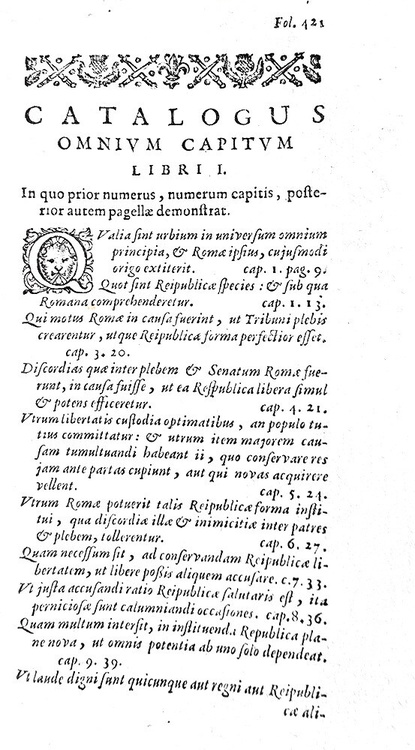 Fol. 421
CATALOGUS
OMNIVM CAPITVM
LIBRI I.
In quo prior numerus, numerum capitis, poste-
rior autem pagellæ demonstrat.
QValia sint urbium in universum omnium
principia, & Romæ ipsius, cujusmodi
origo extiterit. cap. 1. pag. 9.
Quot sint Reipublicæ species: & sub qua
Romana comprehenderetur. cap. 1. 13.
Qui motus Romæ in causa fuerint, ut Tribuni plebis
crearentur, utque Reipublicæ forma perfectior esset.
cap. 3. 20.
Discordias quæ inter plebem & Senatum Romæ fue-
runt, in causa fuisse, ut ea Respublica libera simul
& potens efficeretur. cap. 4. 21.
Vtrum libertatis custodia optimatibus, an populo tu-
tius committatur: & utrum item majorem cau-
sam tumultuandi habeant ii, quo conservare res
jam ante partas cupiunt, aut qui novas acquirere
vellent. cap. 5. 24.
Vtrum Romæ potuerit talis Reipublicæ forma insti-
tui, qua discordiæ illæ & inimicitiæ inter patres
& plebem, tollerentur. cap. 6. 27.
Quam necessum sit, ad conservandam Reipublicæ li-
bertatem, ut libere possis aliquem accusare. c. 7. 33.
Vt justa accusandi ratio Reipublicæ salutaris est, ita
perniciosæ sunt calumniandi occasiones. cap. 8. 36.
Quam multum intersit, in instituenda Republica pla-
ne nova, ut omnis potentia ab uno solo dependeat.
cap. 9. 39.
Vt laude digni sunt quicunque aut regni aut Reipubli-
cæ ali-